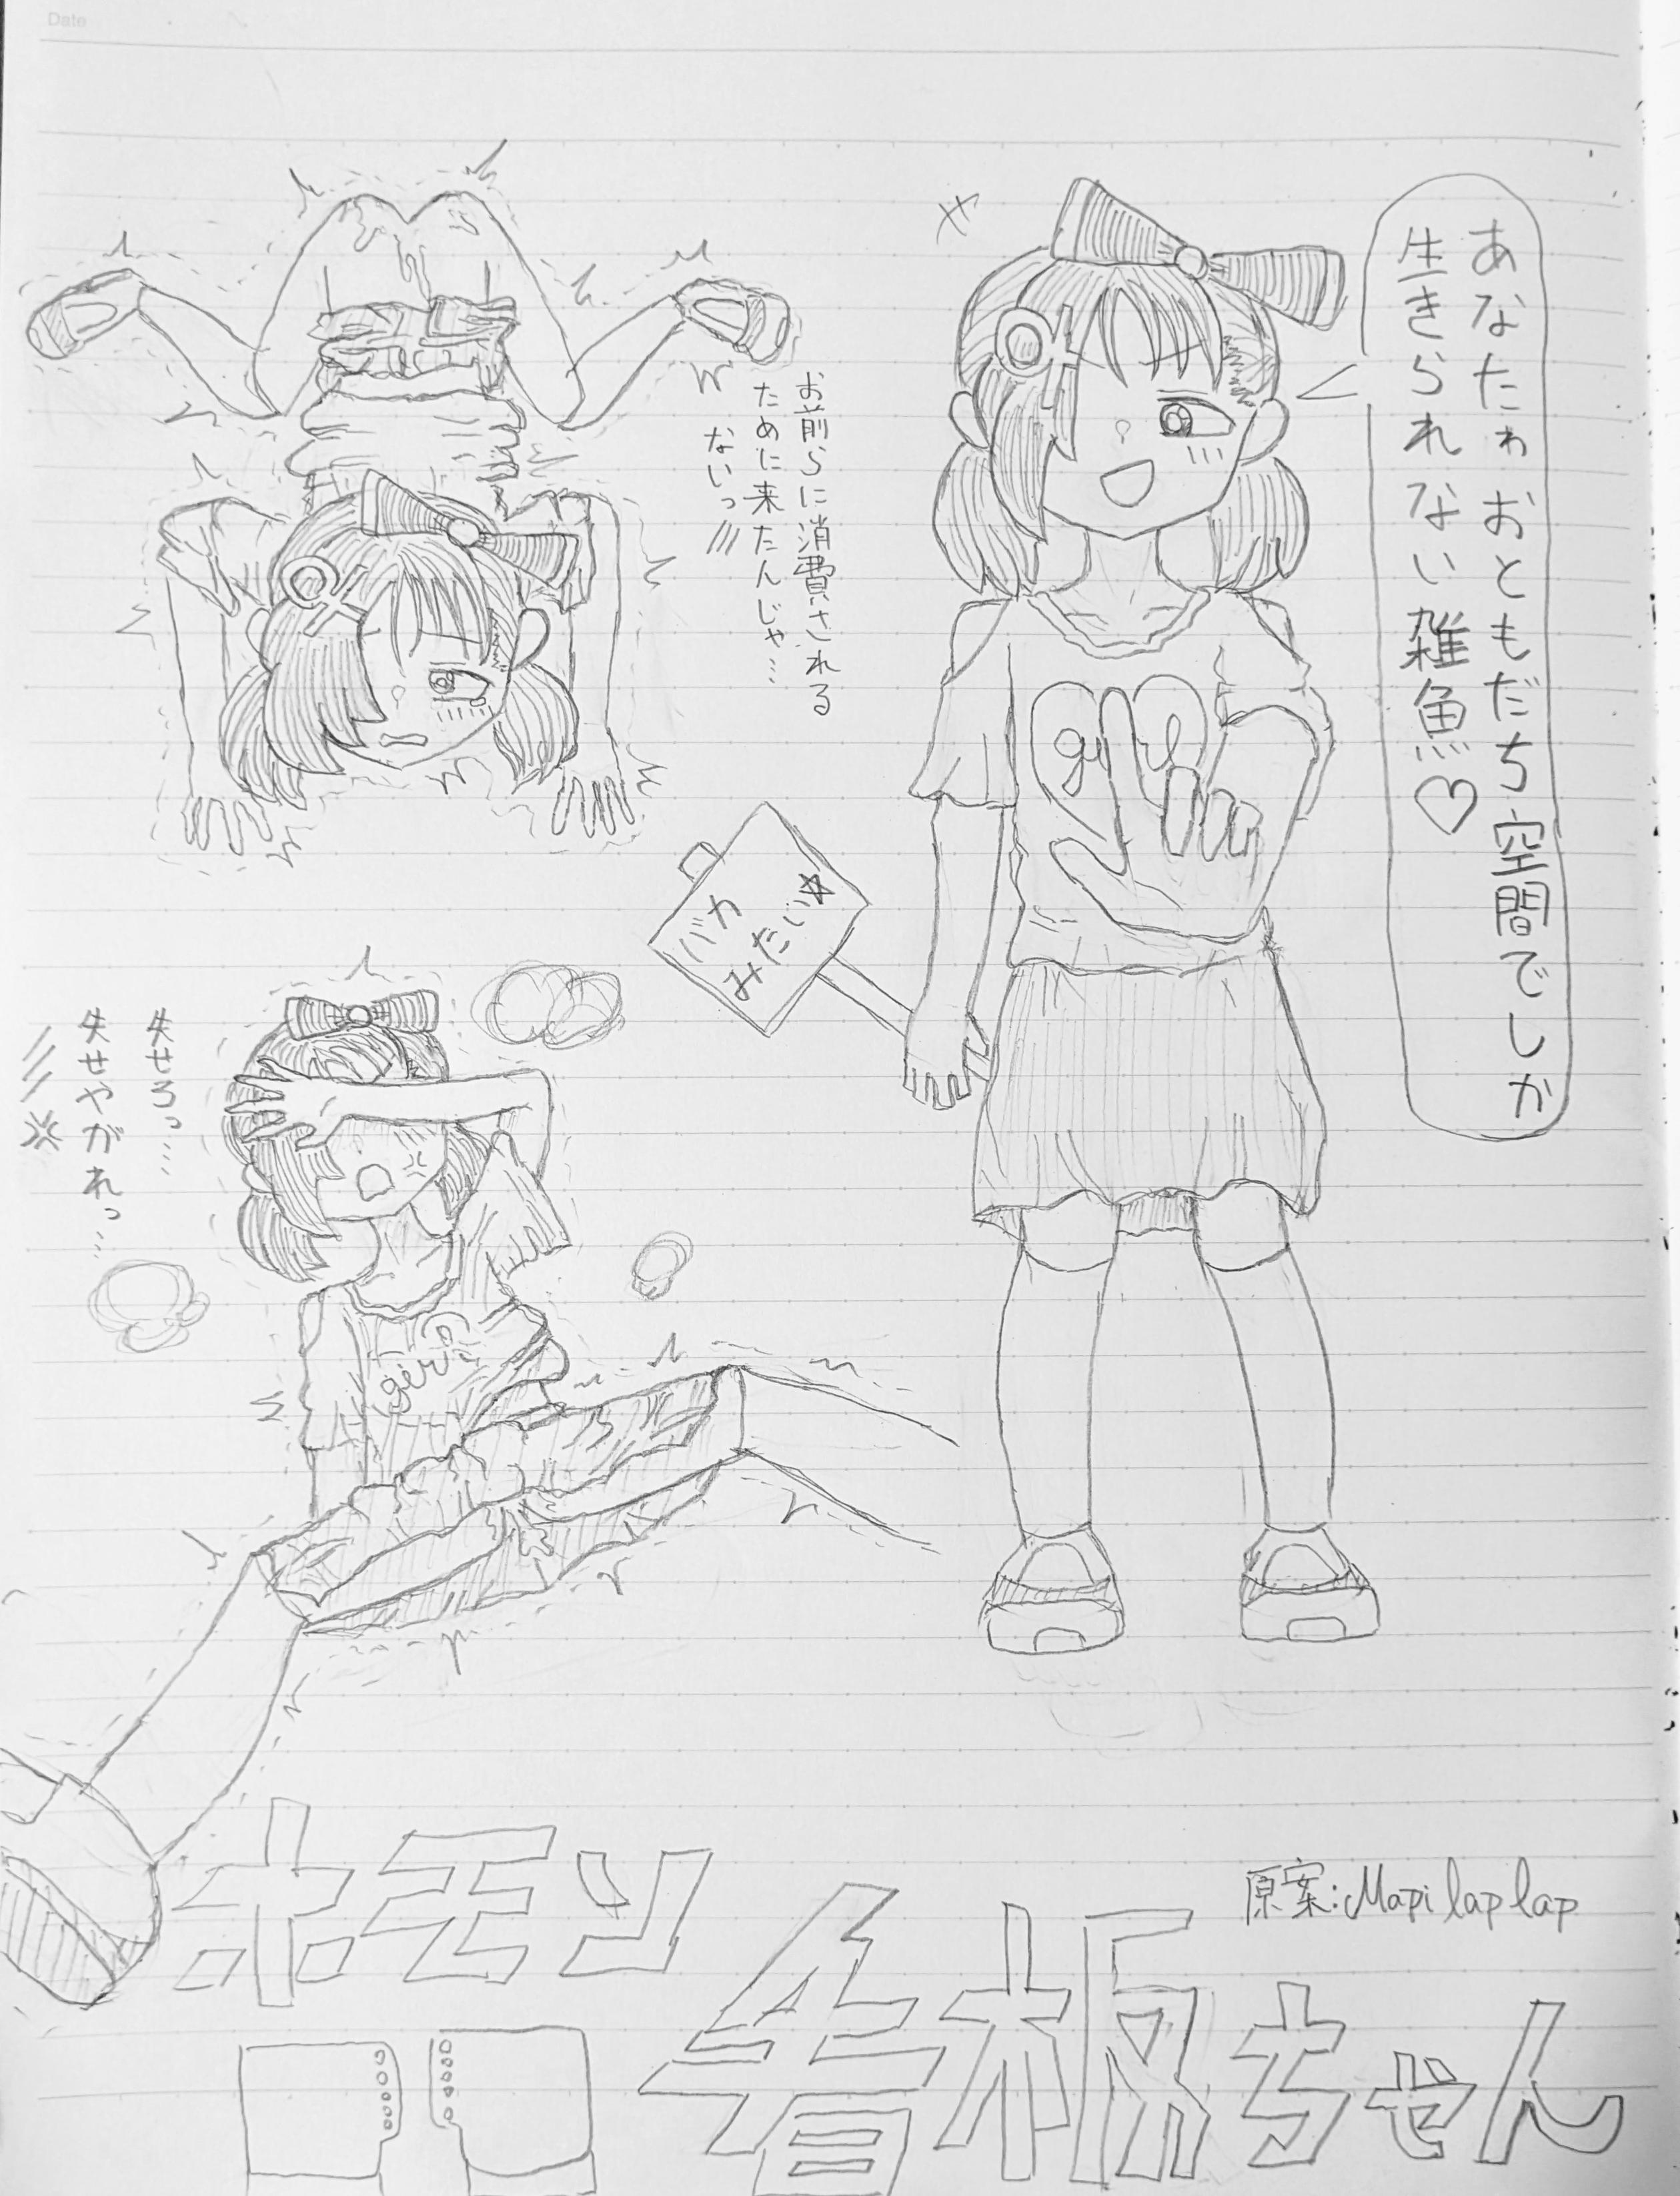 Date
あなたゎおともだち空間でしか
生きられない雑魚♡
お前らに消費される
ために来たんじゃ…
ないっ///
girl
バカ
みたい☆
失せろっ…
失せやがれっ…
girl
原案:Mapi lap lap
ホモソ
看板ちゃん